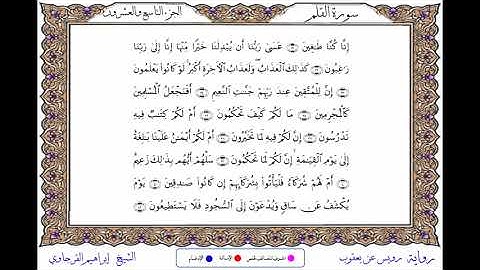 سورة القلم
الجزء التاسع والعشرون
إِنَّا كُنَّا طَٰغِينَ ۝ عَسَىٰ رَبُّنَا أَن يُبْدِلَنَا خَيْرًا مِّنْهَا إِنَّا إِلَىٰ رَبِّنَا
رَٰغِبُونَ ۝ كَذَٰلِكَ ٱلْعَذَابُ وَلَعَذَابُ ٱلْأَخِرَةِ أَكْبَرُ لَوْ كَانُوا۟ يَعْلَمُونَ
۝ إِنَّ لِلْمُتَّقِينَ عِندَ رَبِّهِمْ جَنَّٰتِ ٱلنَّعِيمِ ۝ أَفَنَجْعَلُ ٱلْمُسْلِمِينَ
كَٱلْمُجْرِمِينَ ۝ مَا لَكُمْ كَيْفَ تَحْكُمُونَ ۝ أَمْ لَكُمْ كِتَٰبٌ فِيهِ
تَدْرُسُونَ ۝ إِنَّ لَكُمْ فِيهِ لَمَا تَخَيَّرُونَ ۝ أَمْ لَكُمْ أَيْمَٰنٌ عَلَيْنَا بَٰلِغَةٌ
إِلَىٰ يَوْمِ ٱلْقِيَٰمَةِ إِنَّ لَكُمْ لَمَا تَحْكُمُونَ ۝ سَلْهُمْ أَيُّهُم بِذَٰلِكَ زَعِيمٌ
۝ أَمْ لَهُمْ شُرَكَآءُ فَلْيَأْتُوا۟ بِشُرَكَآئِهِمْ إِن كَانُوا۟ صَٰدِقِينَ ۝ يَوْمَ
يُكْشَفُ عَن سَاقٍ وَيُدْعَوْنَ إِلَى ٱلسُّجُودِ فَلَا يَسْتَطِيعُونَ ۝
رواية رويس عن يعقوب
الشيخ إبراهيم الفرجاوي